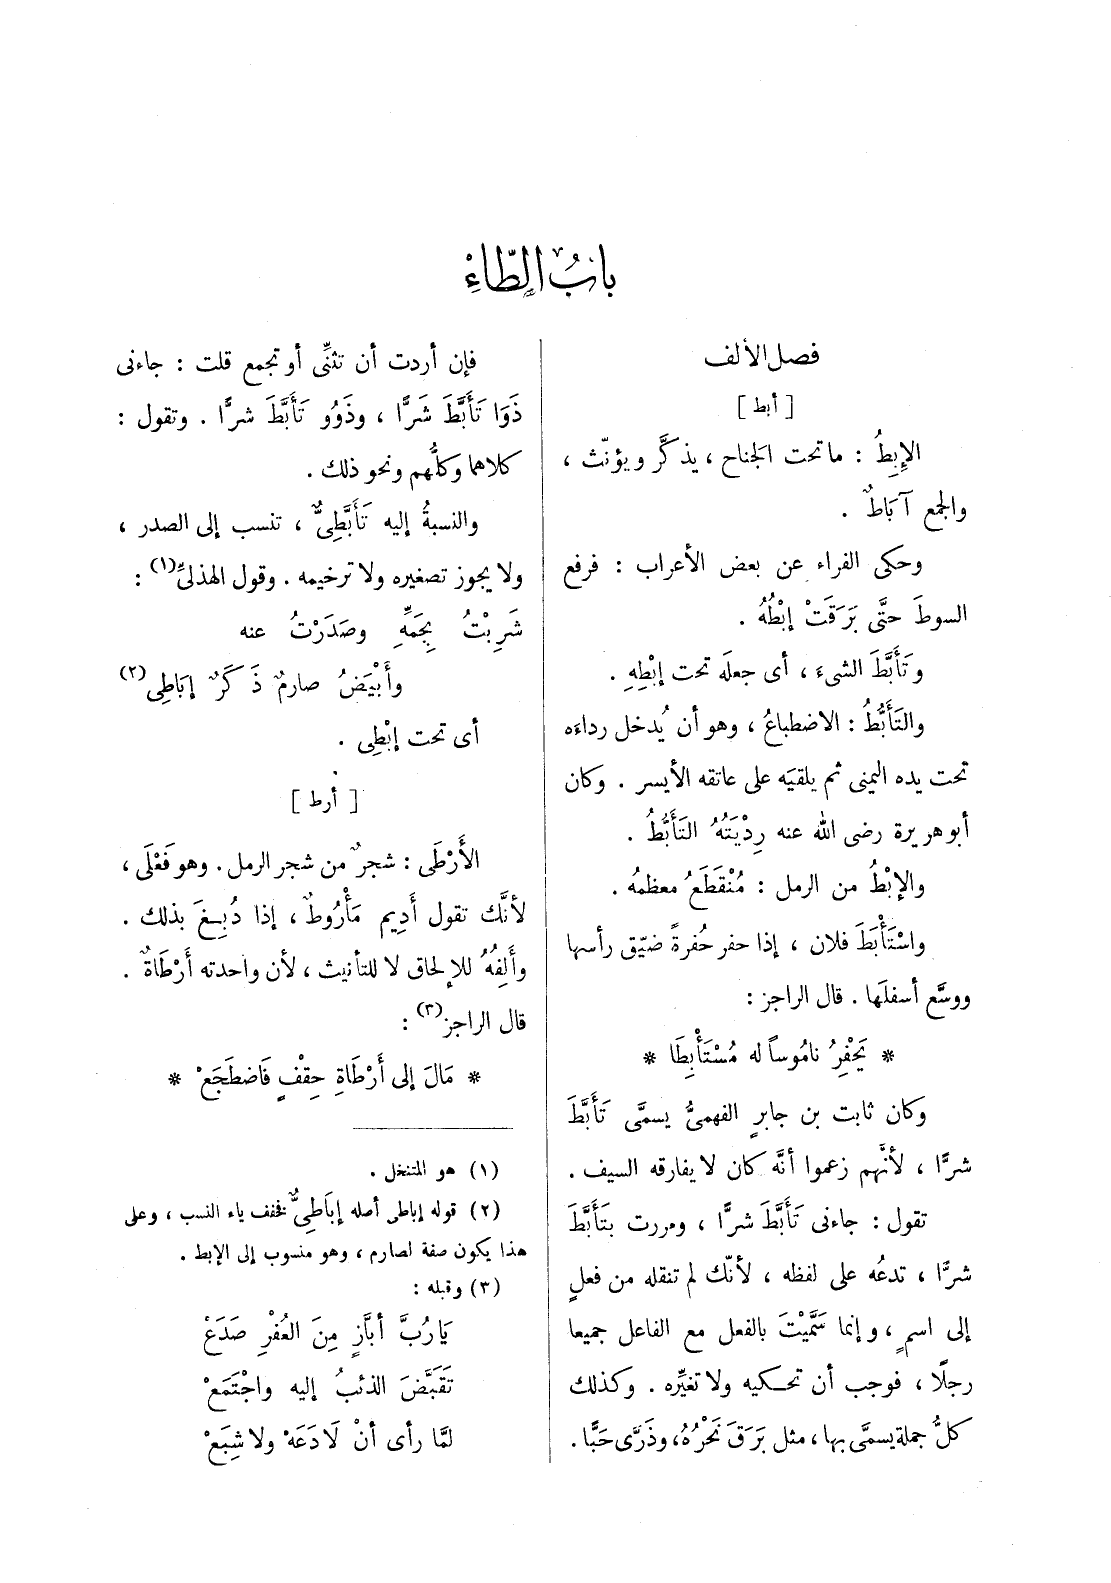 بابُ الطّاءِ
فصل الألف
[ أبط ]
الإِبِطُ : ما تحت الجناح ، يذكَّر ويؤنّث ،
والجمع آبَاطٌ .
وحكى الفراء عن بعض الأعراب : فرفع
السوطَ حتَّى بَرَقَتْ إبْطُهُ .
وتَأَبَّطَ الشىءَ ، أى جعلَه تحت إبْطِهِ .
والتَأَبُّطُ : الاضطباعُ ، وهو أن يُدخل رداءَه
تحت يده اليمنى ثم يلقيَه على عاتقه الأيسر . وكان
أبو هريرة رضى الله عنه رِدْيَتُهُ التَأَبُّطُ .
والإبْطُ من الرمل : مُنْقَطَعُ معظمُه .
واسْتَأْبَطَ فلان ، إذا حفر حُفرةً ضيّق رأسها
ووسَّع أسفلَها . قال الراجز :
* يَحْفِرُ نامُوساً له مُسْتَأْبِطَا *
وكان ثابت بن جابرٍ الفهمىُّ يسمَّى تَأَبَّطَ
شرًّا ، لأنَّهم زعموا أنَّه كان لا يفارقه السيف .
تقول : جاءنى تَأَبَّطَ شرًّا ، ومررت بتَأَبَّطَ
شرًّا ، تدعُه على لفظه ، لأنّك لم تنقله من فعلٍ
إلى اسمٍ ، وإنما سَمَّيْتَ بالفعل مع الفاعل جميعا
رجلًا ، فوجب أن تحكيه ولا تغيِّره . وكذلك
كلُّ جملة يسمَّى بها ، مثل بَرَقَ نَحْرُهُ، وذَرَّى حَبًّا .
فإن أردت أن تثنِّى أو تجمع قلت : جاءنى
ذَوَا تَأَبَّطَ شَرًّا ، وذَوُو تَأَبَّطَ شرًّا . وتقول :
كلاهما وكلُّهم ونحو ذلك .
والنسبةُ إليه تَأَبَّطِىٌّ ، تنسب إلى الصدر ،
ولا يجوز تصغيره ولا ترخيمه . وقول الهذلىِّ(١) :
شَرِبْتُ بِجَمِّهِ وصَدَرْتُ عنه
وأَبْيَضُ صارمٌ ذَكَرٌ إبَاطِى(٢)
أى تحت إبْطِى .
[ أرط ]
الأَرْطَى : شجرٌ من شجر الرمل . وهو فَعْلَى ،
لأنَّك تقول أَدِيم مَأْرُوطٌ ، إذا دُبِغَ بذلك .
وأَلِفُهُ للإلحاق لا للتأنيث ، لأن واحدته أَرْطَاةٌ .
قال الراجز(٣) :
* مَالَ إلى أَرْطَاةِ حِقْفٍ فَاضطَجَعْ *
(١) هو المتنخل .
(٢) قوله إباطى أصله إبَاطِىٌّ فخفف ياء النسب ، وعلى
هذا يكون صفة لصارم ، وهو منسوب إلى الإبط .
(٣) وقبله :
يَارُبَّ أبَّازٍ مِنَ العُفْرِ صَدَعْ
تَقَبَّضَ الذئبُ إليه واجْتَمَعْ
لمَّا رأى أنْ لَا دَعَهْ ولا شِبَعْ